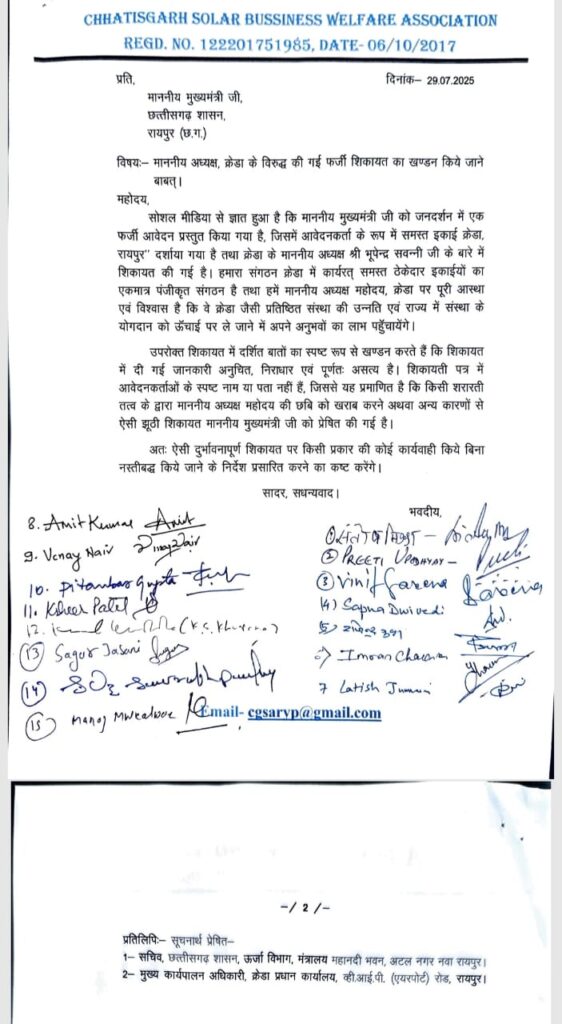 CHHATISGARH SOLAR BUSSINESS WELFARE ASSOCIATION
REGD. NO. 122201751985, DATE- 06/10/2017
प्रति, दिनांक– 29.07.2025
माननीय मुख्यमंत्री जी,
छत्तीसगढ़ शासन,
रायपुर (छ.ग.)
विषयः– माननीय अध्यक्ष, क्रेडा के विरुद्ध की गई फर्जी शिकायत का खण्डन किये जाने
बाबत्।
महोदय,
सोशल मीडिया से ज्ञात हुआ है कि माननीय मुख्यमंत्री जी को जनदर्शन में एक
फर्जी आवेदन प्रस्तुत किया गया है, जिसमें आवेदनकर्ता के रूप में समस्त इकाई क्रेडा,
रायपुर" दर्शाया गया है तथा क्रेडा के माननीय अध्यक्ष श्री भूपेन्द्र सवन्नी जी के बारे में
शिकायत की गई है। हमारा संगठन क्रेडा में कार्यरत् समस्त ठेकेदार इकाईयों का
एकमात्र पंजीकृत संगठन है तथा हमें माननीय अध्यक्ष महोदय, क्रेडा पर पूरी आस्था
एवं विश्वास है कि वे क्रेडा जैसी प्रतिष्ठित संस्था की उन्नति एवं राज्य में संस्था के
योगदान को ऊँचाई पर ले जाने में अपने अनुभवों का लाभ पहुँचायेंगे।
उपरोक्त शिकायत में दर्शित बातों का स्पष्ट रूप से खण्डन करते हैं कि शिकायत
में दी गई जानकारी अनुचित, निराधार एवं पूर्णतः असत्य है। शिकायती पत्र में
आवेदनकर्ताओं के स्पष्ट नाम या पता नहीं हैं, जिससे यह प्रमाणित है कि किसी शरारती
तत्व के द्वारा माननीय अध्यक्ष महोदय की छबि को खराब करने अथवा अन्य कारणों से
ऐसी झूठी शिकायत माननीय मुख्यमंत्री जी को प्रेषित की गई है।
अतः ऐसी दुर्भावनापूर्ण शिकायत पर किसी प्रकार की कोई कार्यवाही किये बिना
नस्तीबद्ध किये जाने के निर्देश प्रसारित करने का कष्ट करेंगे।
सादर, सधन्यवाद।
भवदीय,
①
② PREETI UPADHYAY –
③ Vinit
(4) Sapna Dwivedi
5
Imran
7 Latish
8. Amit Kumar Amit
9. Vinay Nair Vinay Nair
10. Pitambar Gupta
11. Patel
12.
⑬ Sagar Jasani
⑭
⑮ Manoj
Email- cgsarvp@gmail.com
-/ 2 /-
प्रतिलिपिः– सूचनार्थ प्रेषित–
1– सचिव, छत्तीसगढ़ शासन, ऊर्जा विभाग, मंत्रालय महानदी भवन, अटल नगर नवा रायपुर।
2– मुख्य कार्यपालन अधिकारी, क्रेडा प्रधान कार्यालय, व्ही.आई.पी. (एयरपोर्ट) रोड, रायपुर।